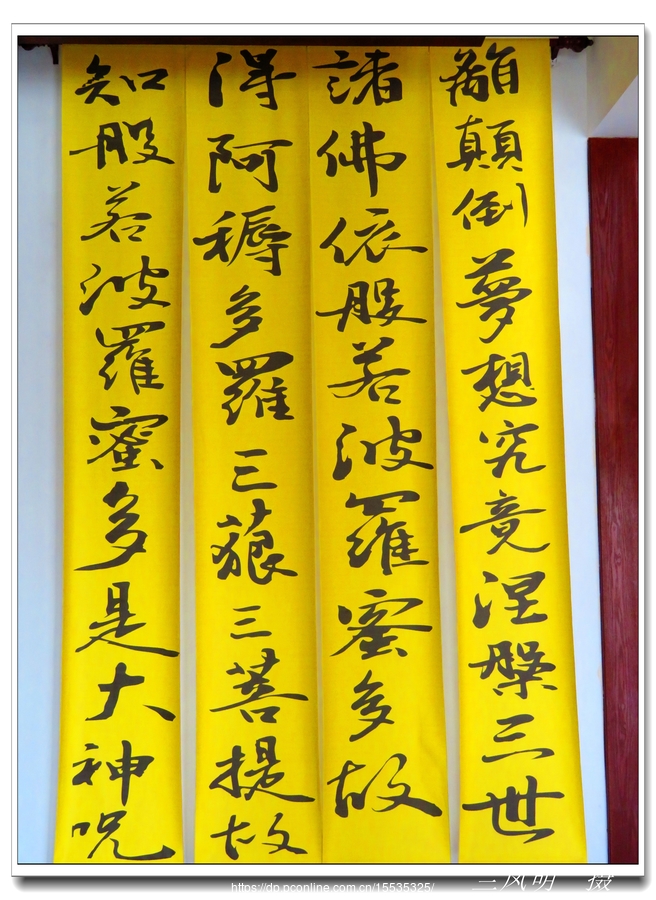 顛顛倒夢想究竟涅槃三世
諸佛依般若波羅蜜多故
得阿耨多羅三藐三菩提故
知般若波羅蜜多是大神咒
https://dp.pconline.com.cn/15535325/
三风明 摄